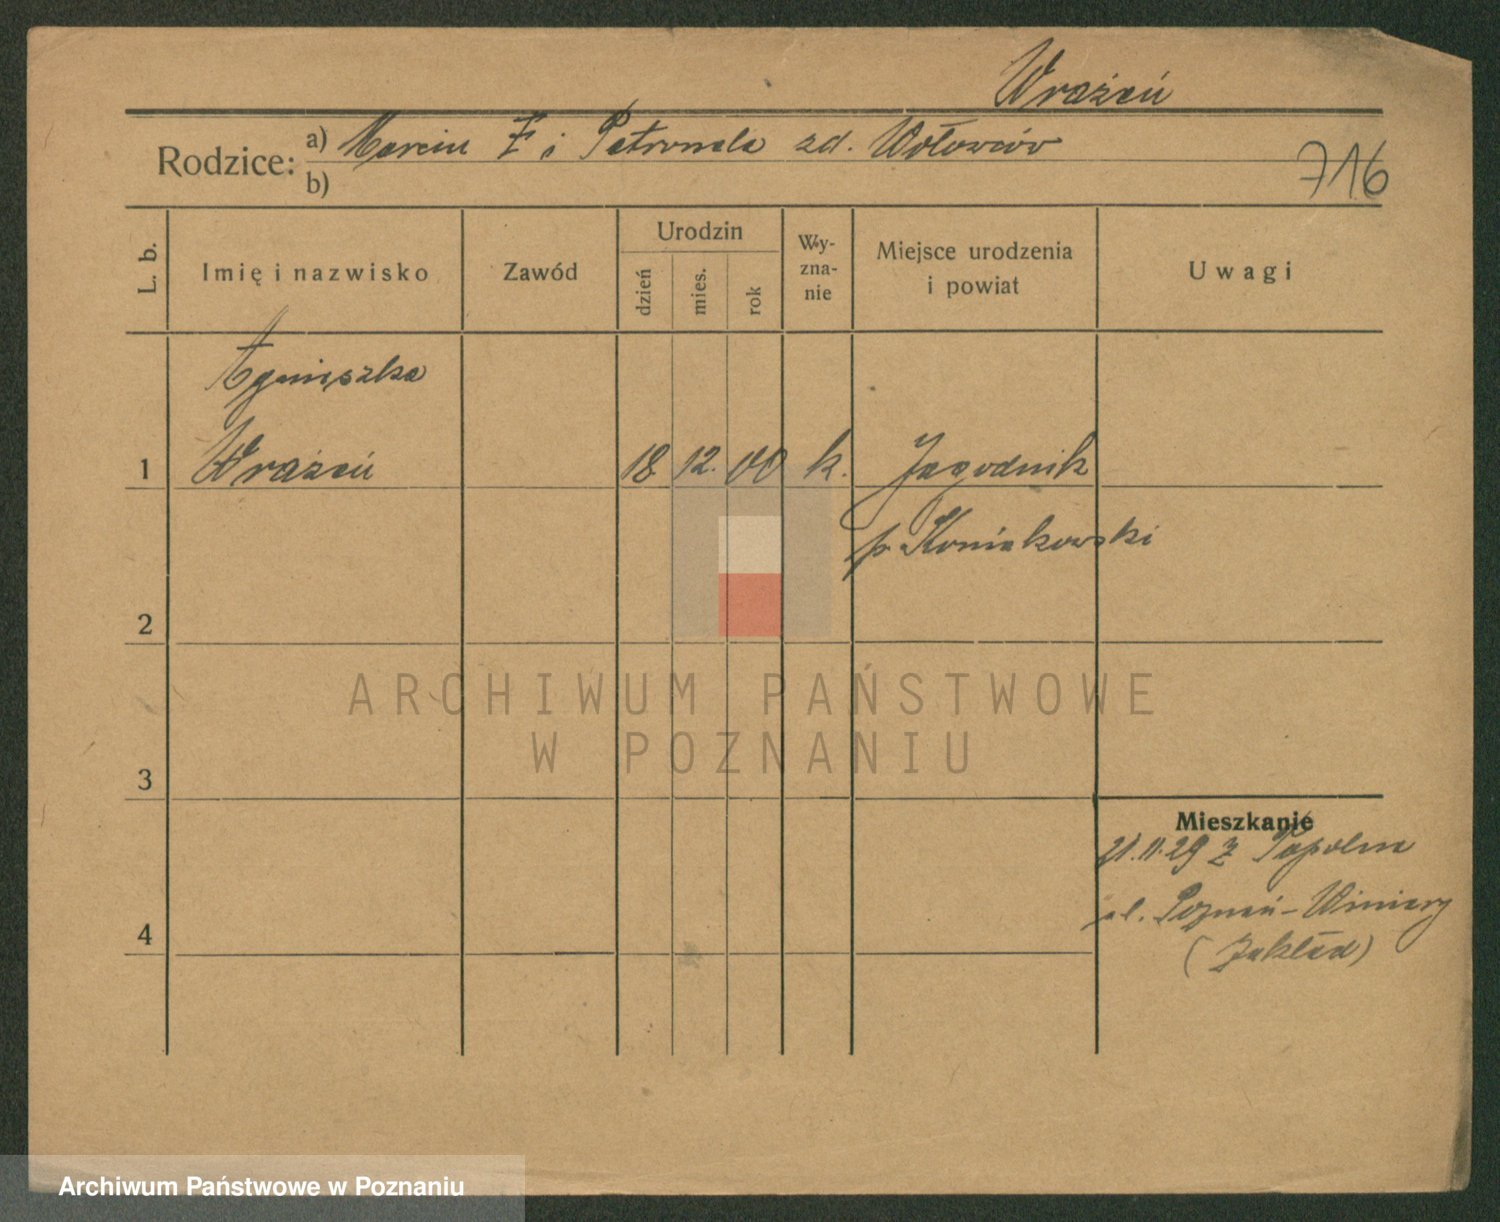 Wrażeń
Rodzice: a) Marcin i Petronela zd.
b)
716
L. b.
Imię i nazwisko
Zawód
Urodzin
dzień
mies.
rok
Wy-
zna-
nie
Miejsce urodzenia
i powiat
Uwagi
Agnieszka
1 Wrażeń 18 12. 00 k. Jagodnik
p.
2
3
4
Mieszkanie
21.11.29 z
ul. Poznań-Winiary
(Zakład)
ARCHIWUM PAŃSTWOWE
W POZNANIU
Archiwum Państwowe w Poznaniu